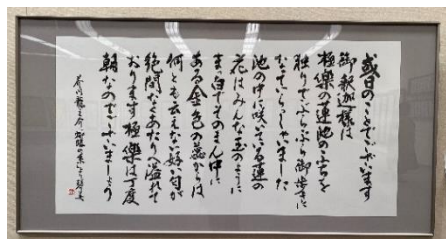 或日のことでございます
御釈迦様は
極楽の蓮池のふちを
独りでぶらぶら御歩きに
なっていらっしゃいました
池の中に咲いている蓮の
花はみんな玉のように
まっ白でそのまん中に
ある金色の蕊からは
何とも云えない好い匂が
絶間なくあたりへ溢れて
おります極楽は丁度
朝なのでございましょう
芥川龍之介 蜘蛛の糸より